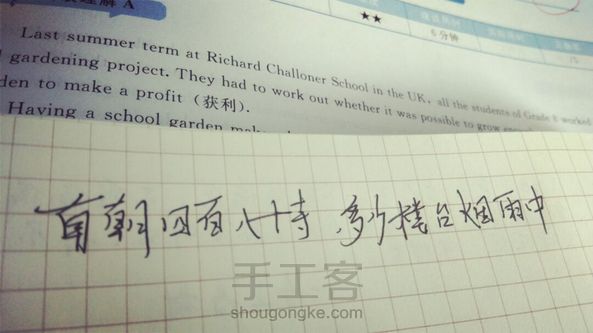 理解 A
★★ 6分钟 /5
Last summer term at Richard Challoner School in the UK, all the students of Grade 8 worked
gardening project. They had to work out whether it was possible to grow
den to make a profit (获利).
Having a school garden
南朝四百八十寺 多少楼台烟雨中
手工客
shougongke.com